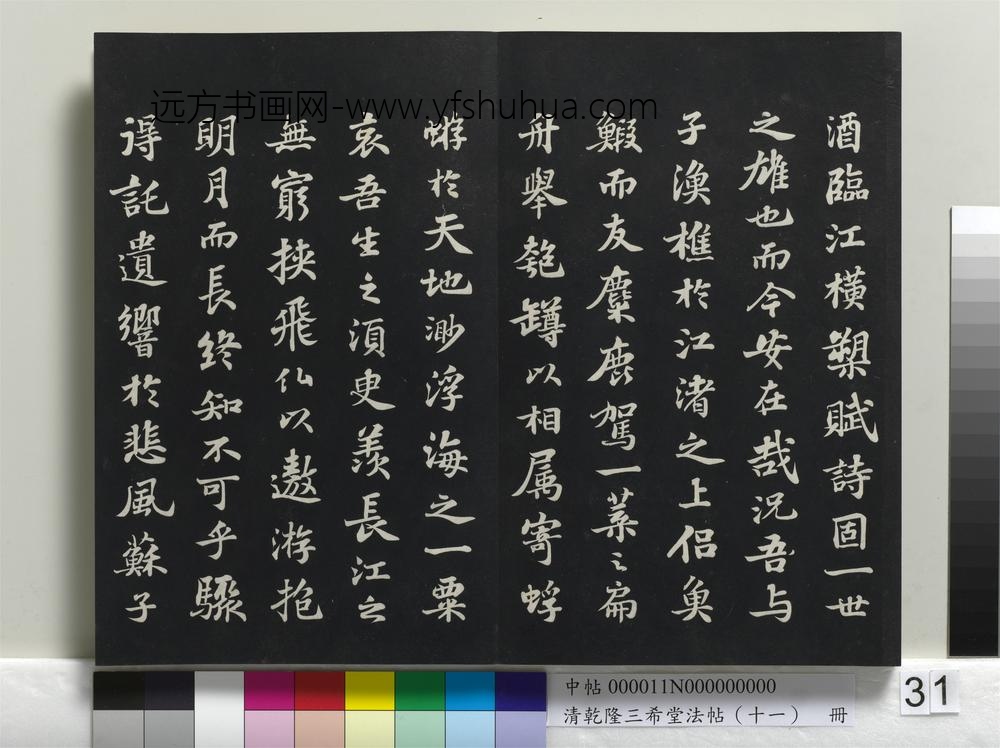 远方书画网-www.yfshuhua.com
酒臨江橫槊賦詩固一世
之雄也而今安在哉況吾与
子漁樵於江渚之上侣魚
鰕而友麋鹿駕一葉之扁
舟舉匏罇以相属寄蜉
蝣於天地渺浮海之一粟
哀吾生之須臾羨長江之
無窮挟飛仙以遨游抱
明月而長終知不可乎驟
得託遺響於悲風蘇子
中帖 000011N000000000
清乾隆三希堂法帖（十一） 冊
31